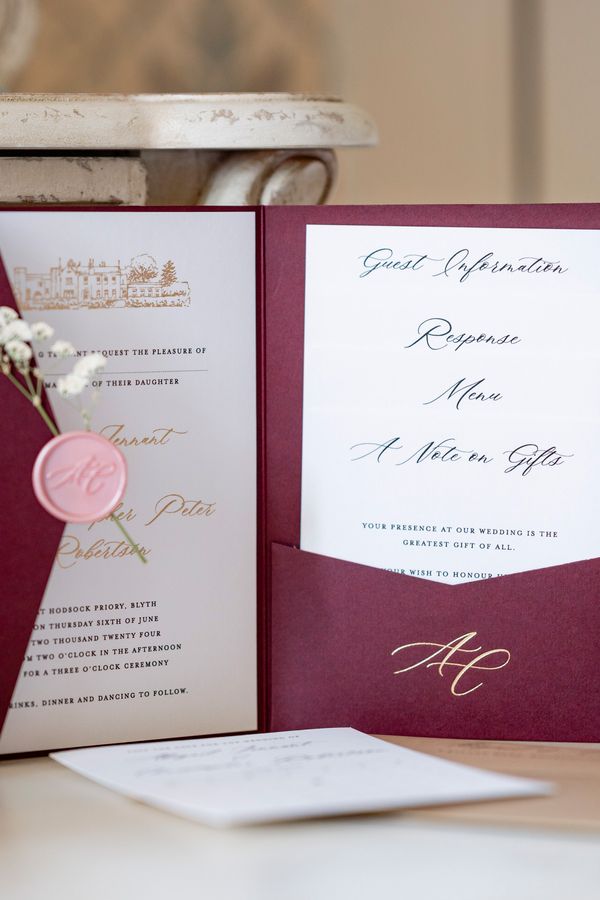 REQUEST THE PLEASURE OF
OF THEIR DAUGHTER
Tennant
Peter
Robertson
HODSOCK PRIORY, BLYTH
ON THURSDAY SIXTH OF JUNE
TWO THOUSAND TWENTY FOUR
TWO O'CLOCK IN THE AFTERNOON
FOR A THREE O'CLOCK CEREMONY
DINNER AND DANCING TO FOLLOW.
AC
Guest Information
Response
Menu
A Note on Gifts
YOUR PRESENCE AT OUR WEDDING IS THE
GREATEST GIFT OF ALL.
YOUR WISH TO HONOUR
AC